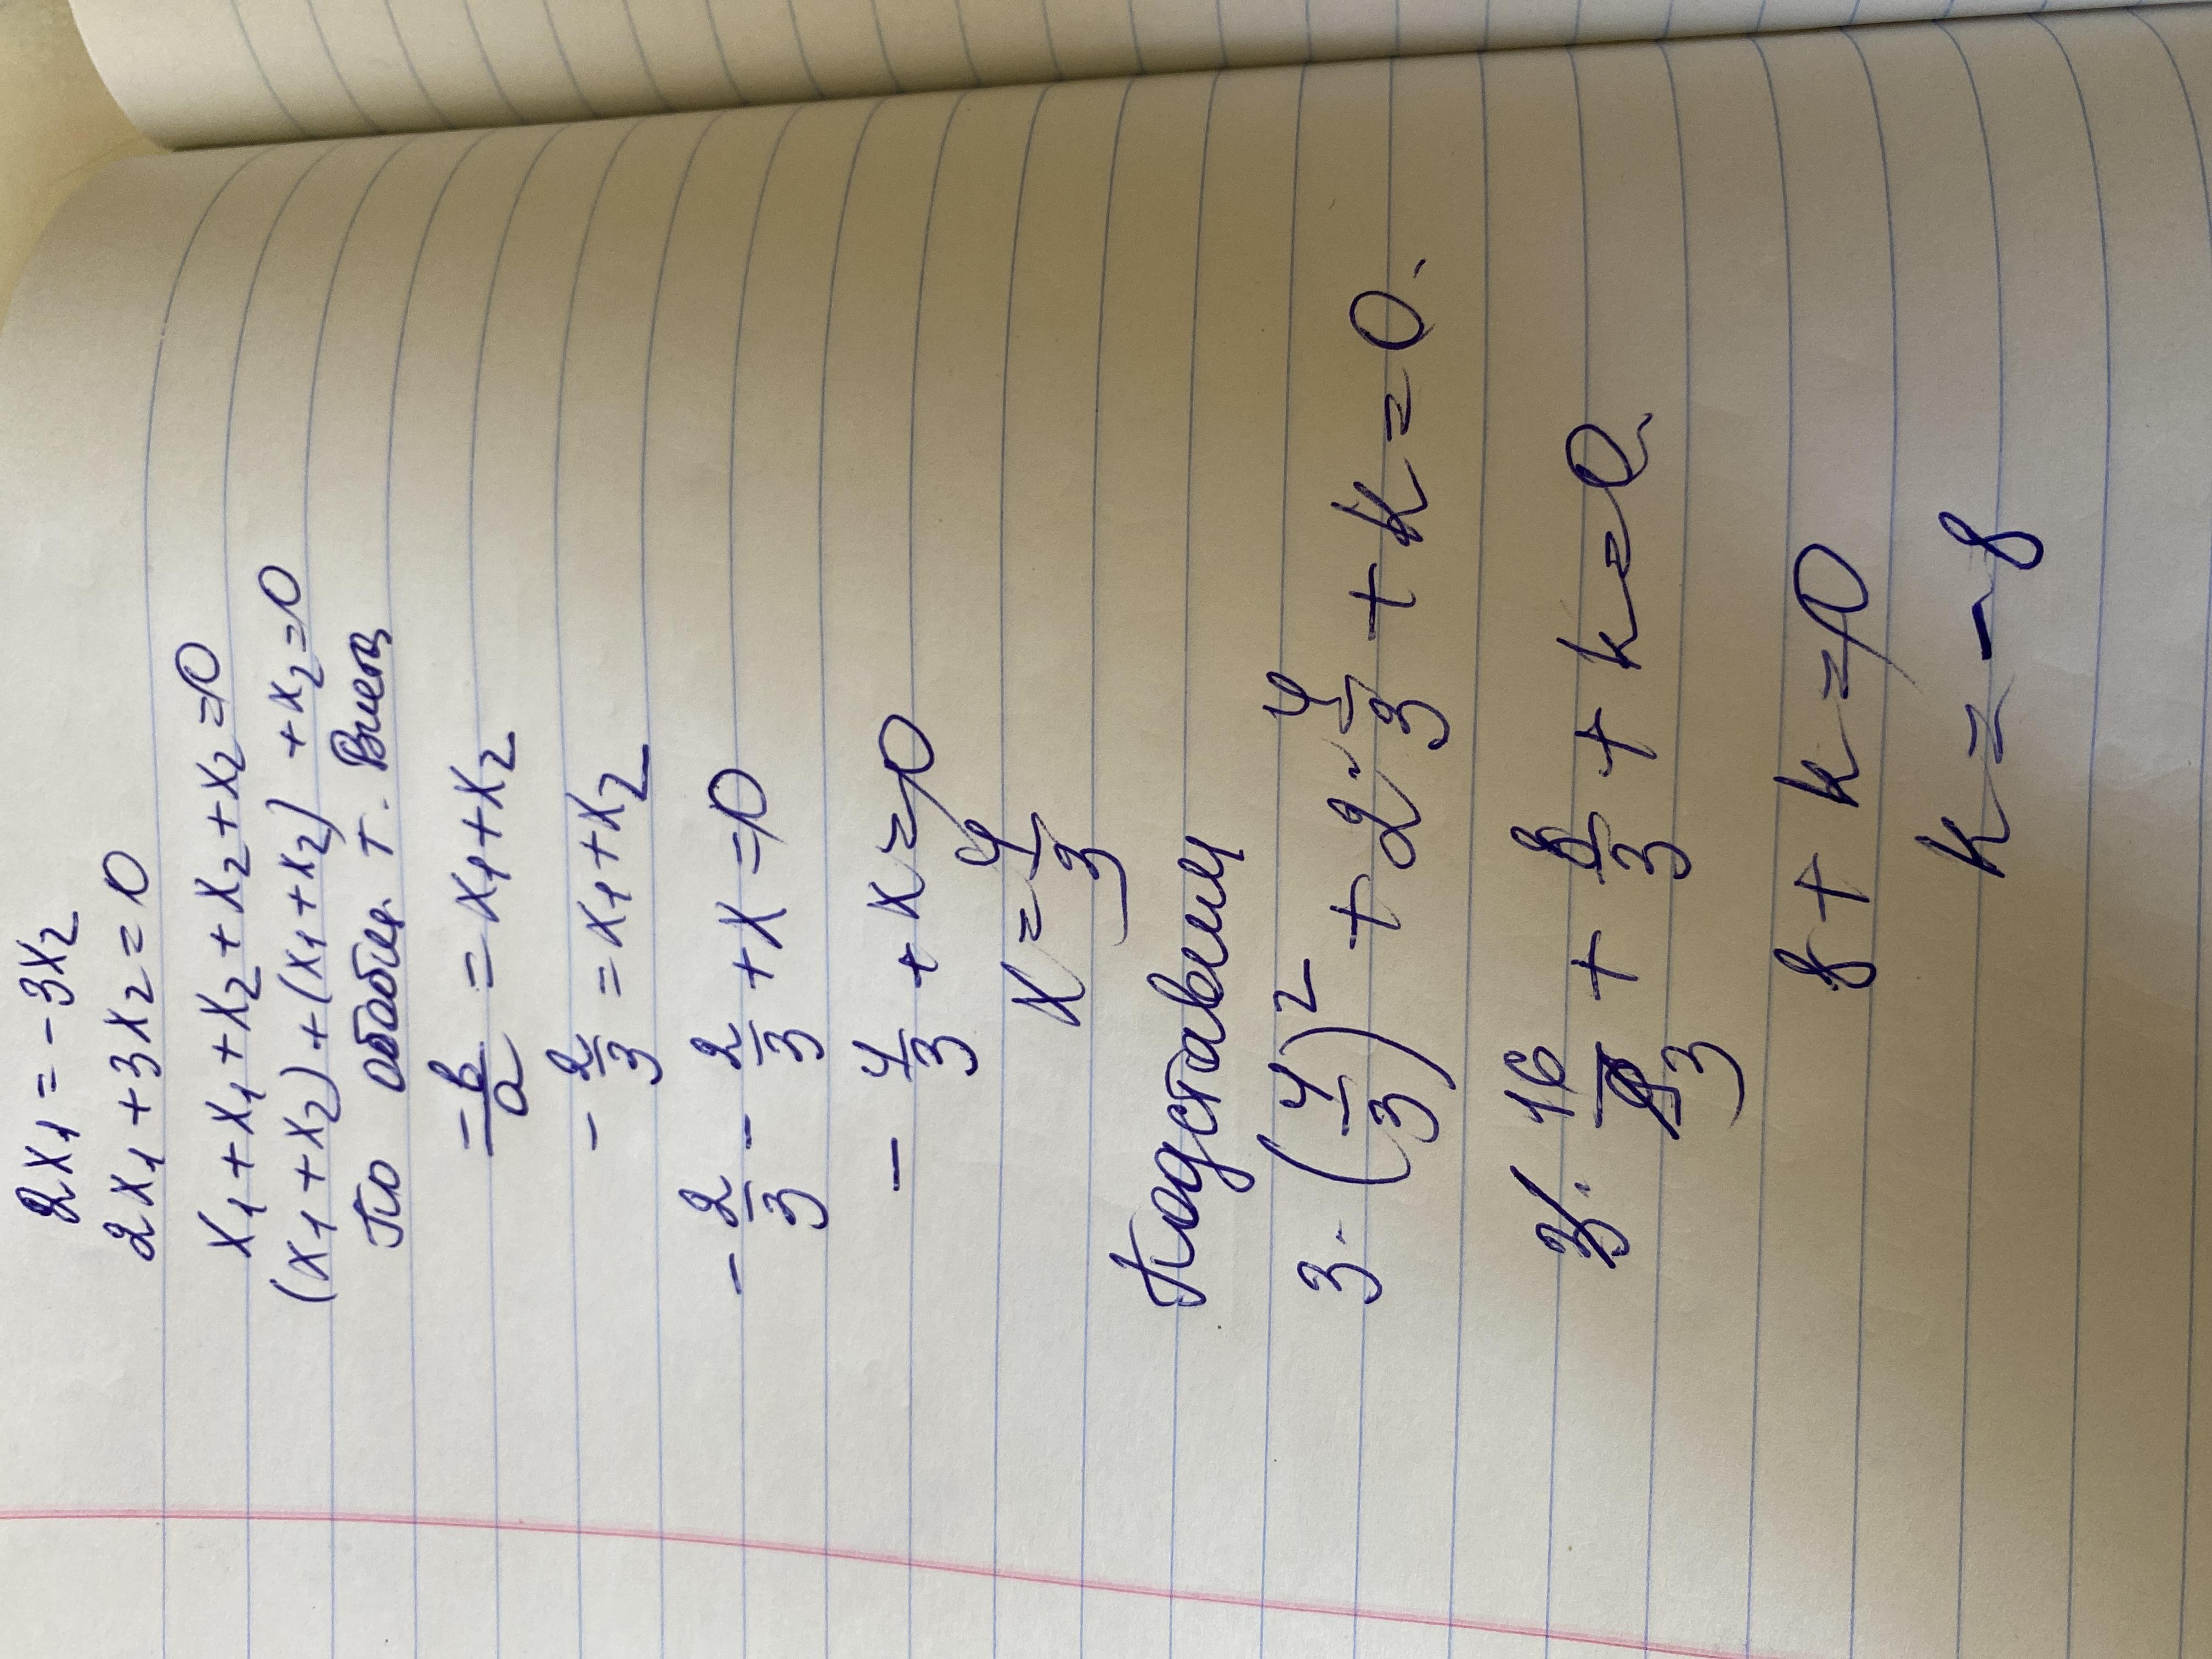 2x₁ = -3x₂
2x₁ + 3x₂ = 0
x₁ + x₁ + x₂ + x₂ + x₂ = 0
(x₁ + x₂) + (x₁ + x₂) + x₂ = 0
По обобщ. т. Виета
-b/a = x₁ + x₂
-2/3 = x₁ + x₂
-2/3 - 2/3 + x = 0
-4/3 + x = 0
x = 4/3
Подставим
3·(4/3)² + 2·4/3 + k = 0.
3·16/9 3 + 8/3 + k = 0.
8 + k = 0
k = -8